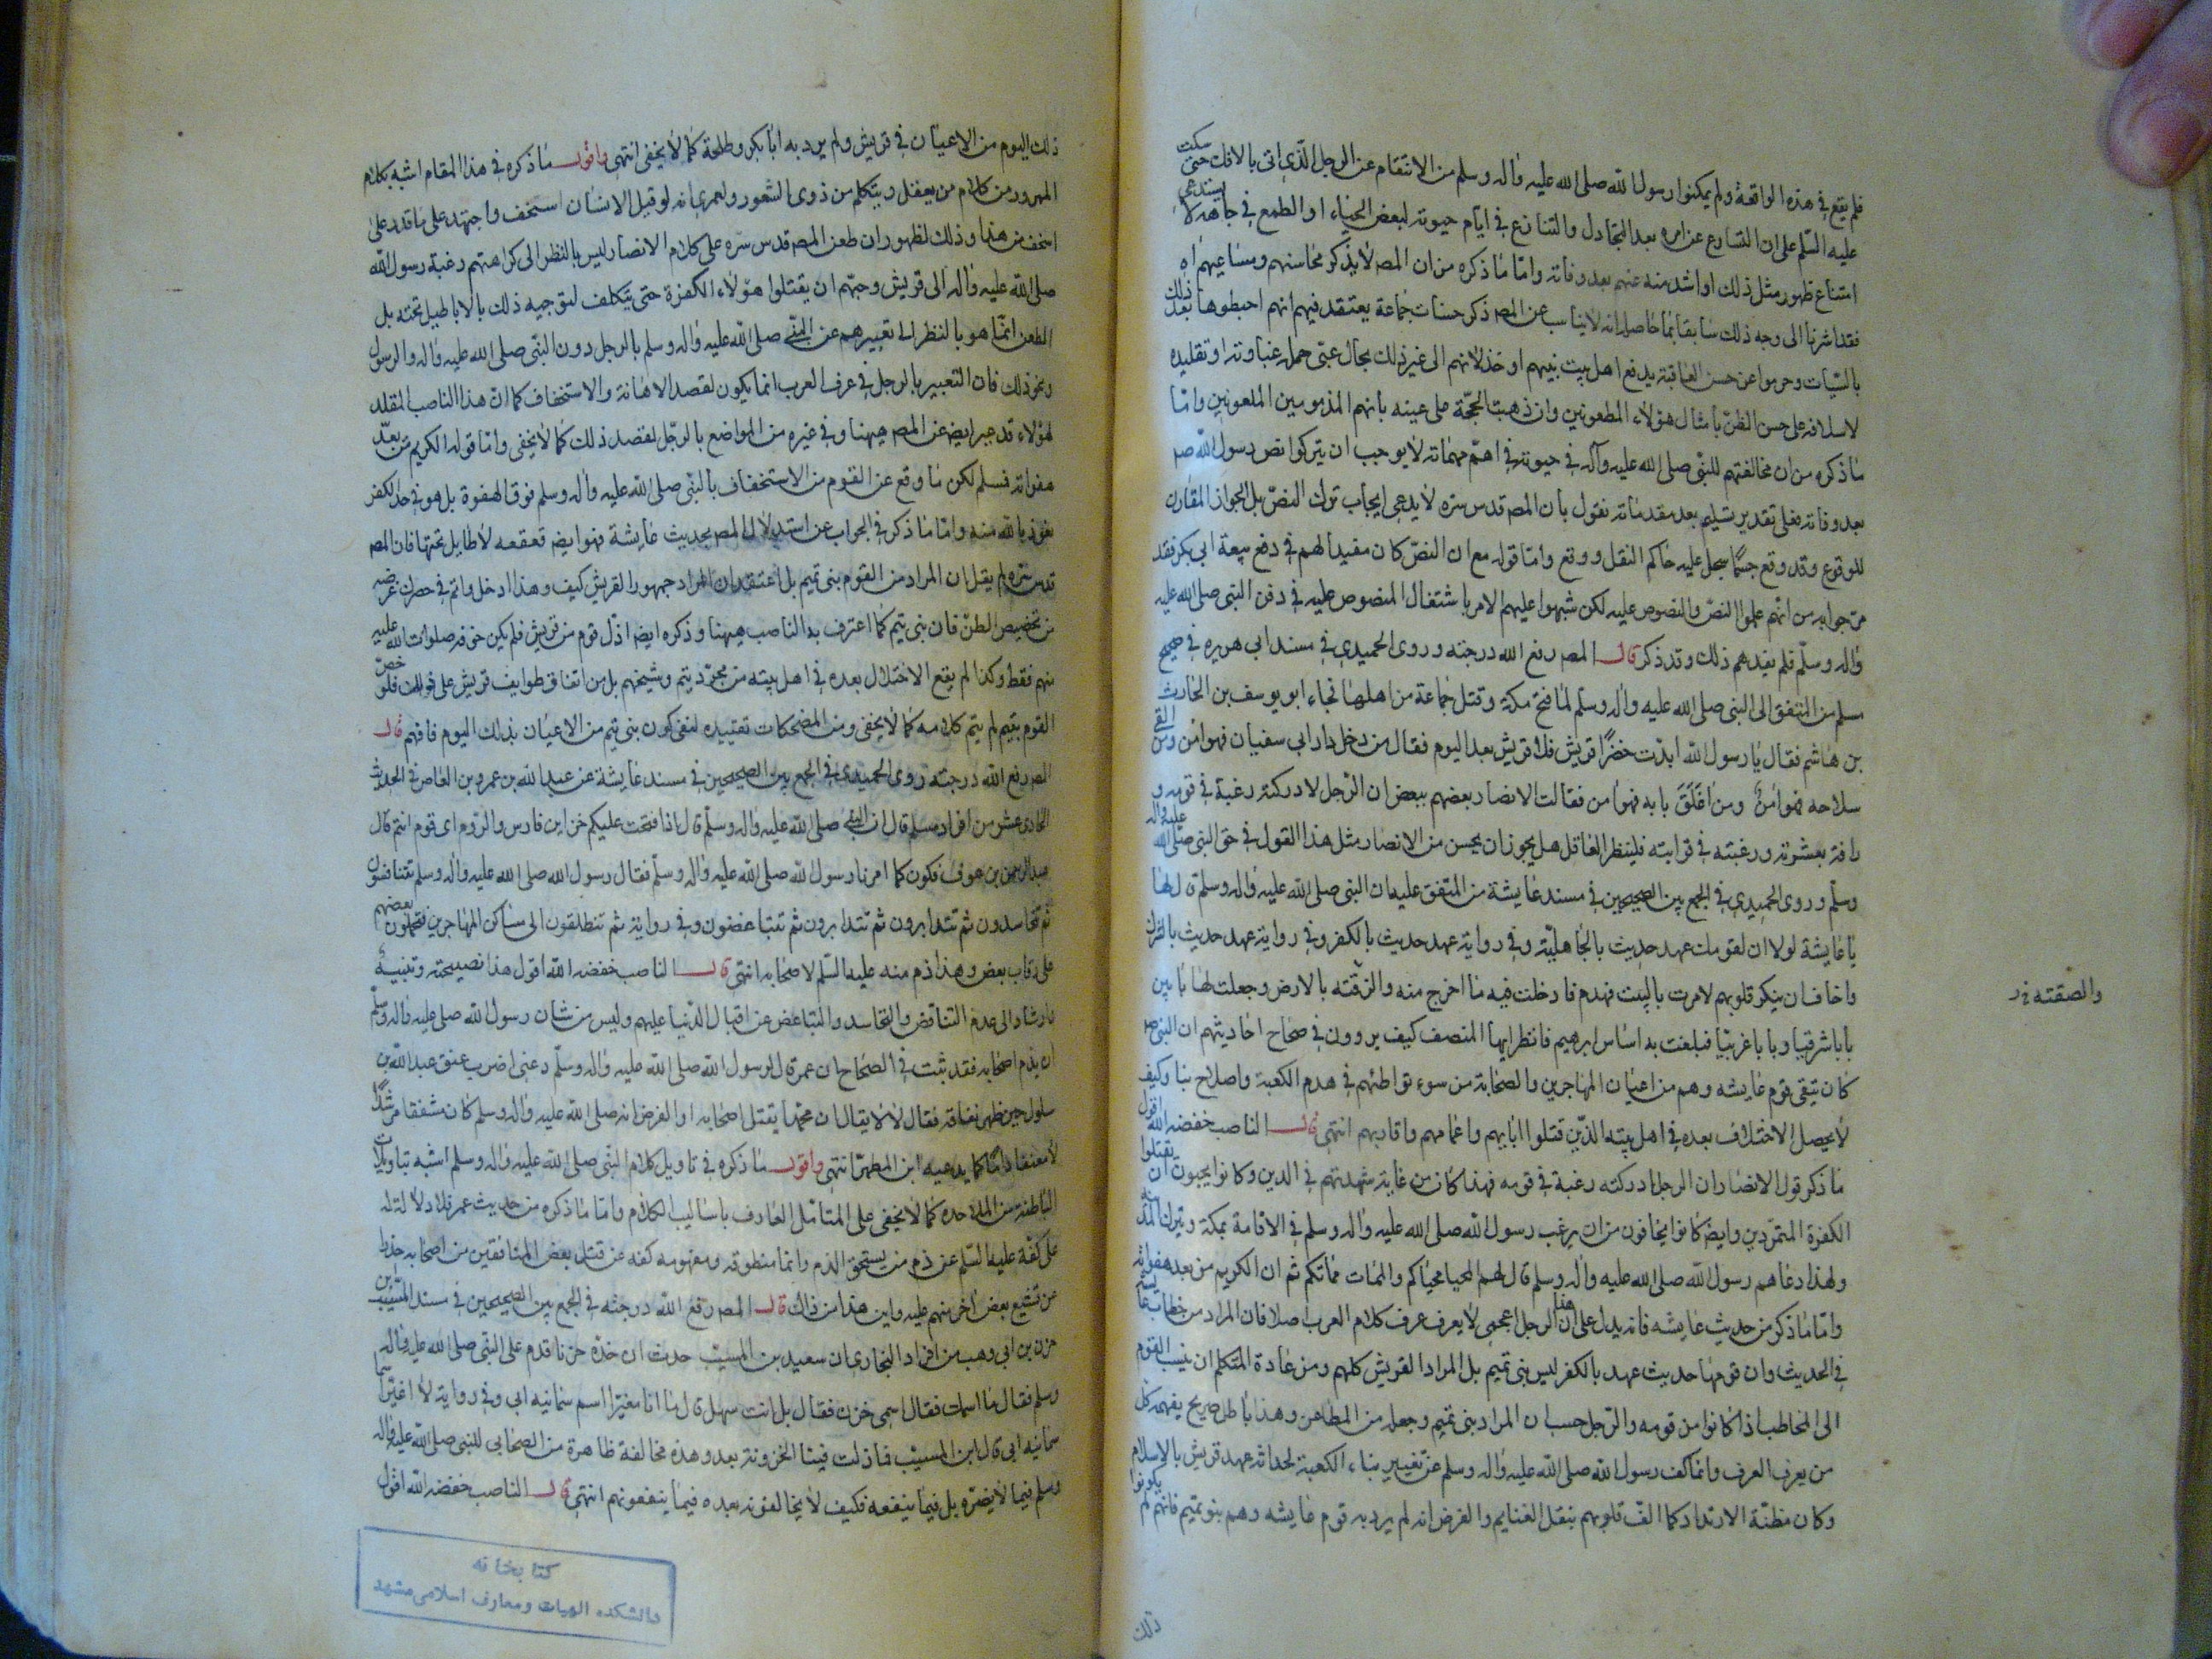 فلم يقع في هذه الواقعة ولم يمكنوا رسول الله صلى الله عليه وآله وسلم من الانتقام عن الرجل الذي اتى بالافك حتى سكت
عليه السلم على ان التسارع عن امره بعد التجادل والتنازع في ايام حيوته لبعض الحياء او الطمع في جاهه لا يستدعي
امتناع ظهور مثل ذلك او اشد منه عنهم بعد وفاته واما ما ذكره من ان المص لا يذكر محاسنهم ومساعيهم اه
فقد اشرنا الى وجه ذلك سابقا بما حاصله انه لا يناسب عن المص ذكر حسنات جماعة يعتقد فيهم انهم احبطوها بعد ذلك
بالسيات وحرموا عن حسن العاقبة بدفع اهل بيت نبيهم او خذلانهم الى غير ذلك بحال عمى حمله غباوته او تقليده
لاسلافه على حسن الظن بامثال هؤلاء المطعونين وان ذهبت الحجة على عينه بانهم المذمومين الملعونين واما
ما ذكره من ان مخالفتهم للنبي صلى الله عليه وآله في حيوته في اهم مهماته لا يوجب ان يتركوا نص رسول الله صم
بعد وفاته فعلى تقدير تسليم بعد مقدماته نقول بان المص قدس سره لا يدعي ايجاب ترك النص بل الجواز المقارن
للوقوع وقد وقع حسبما سجل عليه حاكم النقل ووقع واما قوله مع ان النص كان مفيدا لهم في دفع بيعة ابي بكر فقد
مر جوابه من انهم علموا النص والمنصوص عليه لكن شبهوا عليهم الامر باشتغال المنصوص عليه في دفن النبي صلى الله عليه
وآله وسلم فلم يفدهم ذلك وتدذكر قال المص رفع الله درجته وروى الحميدي في مسند ابي هريره في صحيح
مسلم من المتفق الى النبي صلى الله عليه وآله وسلم لما فتح مكة وقتل جماعة من اهلها فجاء ابو يوسف بن الحارث
بن هاشم فقال يا رسول الله ابدت خضرا قريش فلا قريش بعد اليوم فقال من دخل دار ابي سفيان فهو امن ومن القى
سلاحه فهو امن ومن اغلق بابه فهو امن فقالت الانصار بعضهم ببعض ان الرجل لادركته رغبة في قومه و
رافة بعشيرته ورغبته في قرابته فلينظر العاقل هل يجوز ان يحسن من الانصار مثل هذا القول في حق النبي صلى الله عليه وآله
وسلم وروى الحميدي في الجمع بين الصحيحين في مسند عايشة من المتفق عليه ان النبي صلى الله عليه وآله وسلم قال لها
يا عايشة لولا ان لقومك عهد حديث بالجاهلية وفي رواية عهد حديث بالكفر وفي رواية عهد حديث بالشرك
واخاف ان ينكر قلوبهم لامرت بالبيت فهدم فادخلت فيه ما اخرج منه والزقته بالارض وجعلت لها بابين
والصقته خ ر
بابا شرقيا وبابا غربيا فبلغت به اساس ابرهيم فانظر ايها المنصف كيف يروون في صحاح احاديثهم ان النبي صم
كان يتقي قوم عايشه وهم من اعيان المهاجرين والصحابة من سوء تواطئهم في هدم الكعبة واصلاح بنا وكيف
لا يحصل الاختلاف بعده في اهل بيته الذين قتلوا ابائهم واعمامهم واقاربهم انتهى قال الناصب خفضه الله اقول
ما ذكر قول الانصار ان الرجل ادركته رغبة في قومه فهذا كان من غاية شهدتهم في الدين وكانوا يحبون ان تقتلوا
الكفرة المتمردين وايض كانوا يخافون من ان يرغب رسول الله صلى الله عليه وآله وسلم في الاقامة بمكة ويترك المدينه
ولهذا دعاهم رسول الله صلى الله عليه وآله وسلم قال لهم المحيا محياكم والممات مماتكم ثم ان الكريم من يعد هفواته
واما ما ذكر من حديث عايشه فانه يدل على ان هذا الرجل اعجمي لا يعرف عرف كلام العرب اصلا فان المراد من خطاب عايشه
في الحديث وان قومها حديث عهد بالكفر ليس بني تميم بل المراد القريش كلهم ومن عادة المتكلم ان ينسب القوم
الى المخاطب اذا كانوا من قومه والرجل حسب ان المراد بني تميم وجعله من المطاعن وهذا باطل صريح يفهمه كل
من يعرف العرف وانما كف رسول الله صلى الله عليه وآله وسلم عن تغيير بناء الكعبة لحداثة عهد قريش بالاسلام
وكان مظنة الارتداد كما الف قلوبهم بنقل الغنايم والغرض انه لم يرد به قوم عايشه وهم بنو تميم فانهم لم يكونوا
ذلك
ذلك اليوم من الاعيان في قريش ولم يرد به ابا بكر وطلحة كما لا يخفى انتهى واقول ما ذكره في هذا المقام اشبه بكلام
المهرور من كلام من يعقل ويتكلم من ذوي الشعور ولعمري انه لو قيل الانسان استخف واجتهد على ما قدر على
اسخف من هذا وذلك لظهور ان طعن المص قدس سره على كلام الانصار ليس بالنظر الى كراهتهم رغبة رسول الله
صلى الله عليه وآله الى قريش وحبهم ان يقتلوا هؤلاء الكفرة حتى يتكلف لتوجيه ذلك بالاباطيل تحته بل
الطعن انما هو بالنظر الى تعبيرهم عن النبي صلى الله عليه وآله وسلم بالرجل دون النبي صلى الله عليه وآله والرسول
ونحو ذلك فان التعبير بالرجل في عرف العرب انما يكون لقصد الاهانة والاستخفاف كما ان هذا الناصب المقلد
لهؤلاء قد عبر ايض عن المص ههنا وفي غيره من المواضع بالرجل لقصد ذلك كما لا يخفى واما قوله الكريم من يعد
هفواته فسلم لكن ما وقع عن القوم من الاستخفاف بالنبي صلى الله عليه وآله وسلم فوق الهفوة بل هو في حد الكفر
نعوذ بالله منه واما ما ذكر في الجواب عن استدلال المص بحديث عايشة فهو ايض قعقعه لا طايل تحتها فان المص
قدس سره لم يقل ان المراد من القوم بني تميم بل اعتقد ان المراد جمهور القريش كيف وهذا ادخل واتم في حصول غرضه
من تخصيص الظن فان بني تيم كما اعترف به الناصب ههنا وذكره ايض اذل قوم من قريش فلم يكن خوفه صلوات الله عليه
منهم فقط وكذا لم يقع الاختلال بعده في اهل بيته من مجرد تيم وشيخهم بل من اتفاق طوايف قريش على ذلك فلو خص
القوم بتيم لم يتم كلامه كما لا يخفى ومن المضحكات تقييده لنفي كون بني تيم من الاعيان بذلك اليوم فافهم قال
المص رفع الله درجته روى الحميدي في الجمع بين الصحيحين في مسند عايشة عن عبد الله بن عمرو بن العاص في الحديث
الحادي عشر من افراد مسلم قال ان النبي صلى الله عليه وآله وسلم قال اذا فتحت عليكم خزاين فارس والروم اي قوم انتم قال
عبد الرحمن بن عوف نكون كما امرنا رسول الله صلى الله عليه وآله وسلم فقال رسول الله صلى الله عليه وآله وسلم تتنافسون
ثم تتحاسدون ثم تتدابرون ثم تتدابرون ثم تتباغضون وفي رواية ثم تنطلقون الى مساكن المهاجرين فتحملون بعضهم
على رقاب بعض وهذا ذم منه عليه السلم لاصحابه انتهى قال الناصب خفضه الله اقول هذا نصيحته وتنبيه
وارشاد الى عدم التناقض والتحاسد والتباغض عن اقبال الدنيا عليهم وليس من شان رسول الله صلى الله عليه وآله وسلم
ان يذم اصحابه فقد ثبت في الصحاح ان عمر قال لرسول الله صلى الله عليه وآله وسلم دعني اضرب عنق عبد الله بن
سلول حين ظهر نفاقه فقال لا لا يقال ان محمدا يقتل اصحابه او الغرض انه صلى الله عليه وآله وسلم كان مشفقا مرشدا
لا معنفا ذاما كما يدعيه ابن المطهر انتهى واقول ما ذكره في تاويل كلام النبي صلى الله عليه وآله وسلم اشبه بتاويلات
الباطنة من الملاحده كما لا يخفى على المتامل العارف باساليب الكلام واما ما ذكره من حديث عمر فلا دلالة له
على كفه عليه السلم عن ذم من يستحق الذم وانما منطوقه ومفهومه كفه عن قتل بعض المنافقين من اصحابه حذرا
عن تشنيع بعض اخر منهم عليه واين هذا من ذاك قال المص رفع الله درجته في الجمع بين الصحيحين في مسند المسيب بن
حزن بن ابي وهب من افراد البخاري ان سعيد بن المسيب حدث ان جده حزنا قدم على النبي صلى الله عليه وآله
وسلم فقال ما اسمك فقال اسمي حزن فقال بل انت سهل قال ما انا مغيرا اسم سمانيه ابي وفي رواية لا اغير اسما
سمانيه ابي قال ابن المسيب فما زلت فينا الحزونة بعد وهذه مخالفة ظاهرة من الصحابي للنبي صلى الله عليه وآله
وسلم فيما لا يضره بل فيما ينفعه فكيف لا يخالفونه بعده فيما ينفعونهم انتهى قال الناصب خفضه الله اقول
كتابخانه
دانشكده الهيات ومعارف اسلامى مشهد